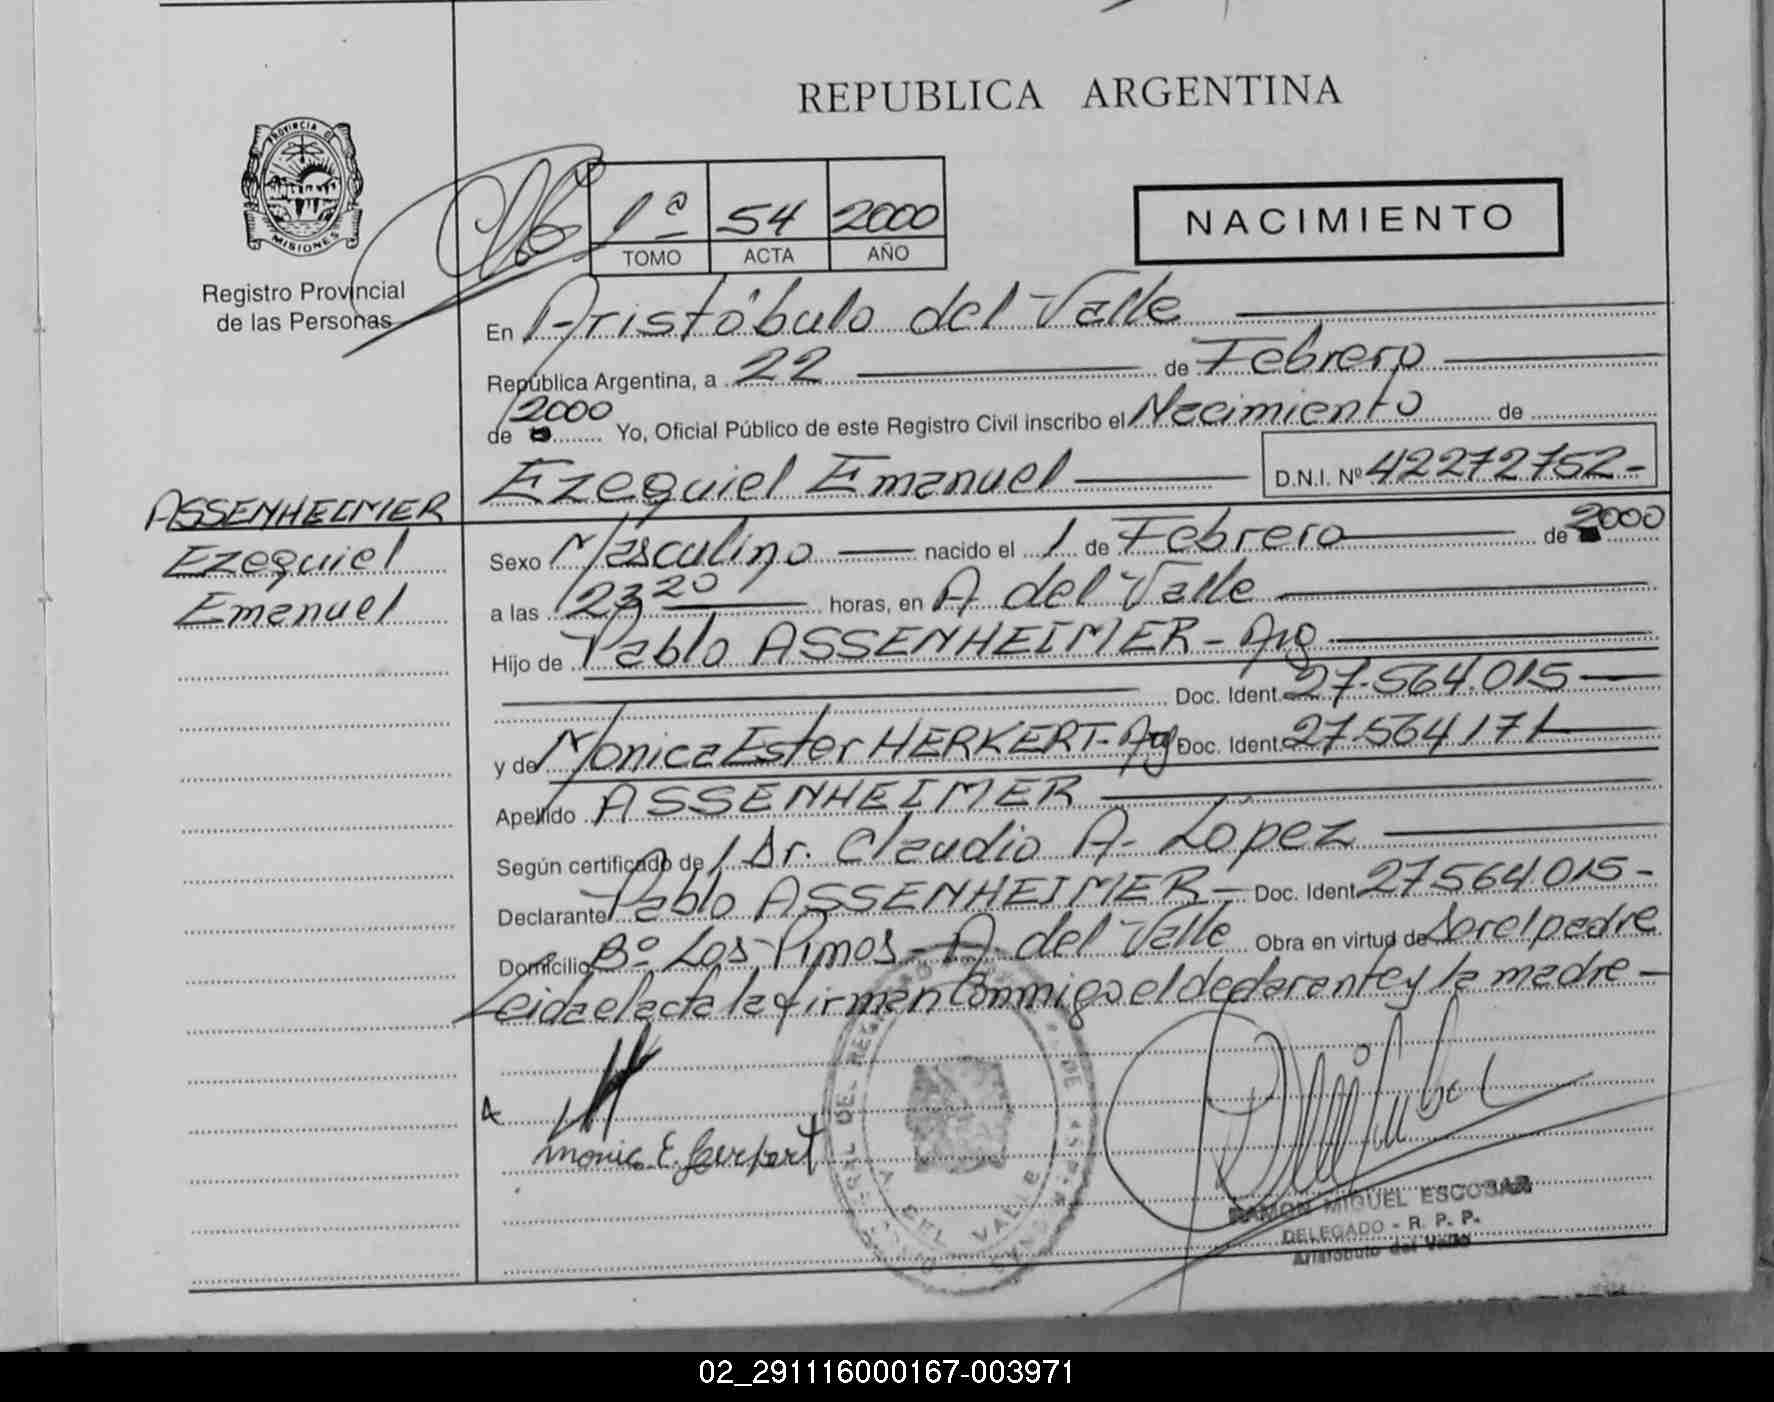 REPUBLICA ARGENTINA
PROVINCIA D
MISIONES
Registro Provincial
de las Personas
1ª 54 2000
TOMO ACTA AÑO
NACIMIENTO
En Aristóbulo del Valle
República Argentina, a 22 de Febrero
de 2000 Yo, Oficial Público de este Registro Civil inscribo el Nacimiento de
Ezequiel Emanuel D.N.I. Nº 42272752-
ASSENHEIMER
Ezequiel
Emanuel
Sexo Masculino nacido el 1 de Febrero de 2000
a las 23 20 horas, en A del Valle
Hijo de Pablo ASSENHEIMER - Arg
Doc. Ident. 27.564.015
y de Monica Ester HERKERT - Arg Doc. Ident. 27564171
Apellido ASSENHEIMER
Según certificado de Dr. Claudio A. López
Declarante Pablo ASSENHEIMER - Doc. Ident. 27564.015 -
Domicilio Bº Los Pinos - A. del Valle Obra en virtud de Ser el padre
Leida el acta la firman Conmigo el declarante y la madre -
Monica E. Herkert
DEL VALLE
RAMON MIGUEL ESCOBAR
DELEGADO - R. P. P.
Aristobulo del Valle
02_291116000167-003971